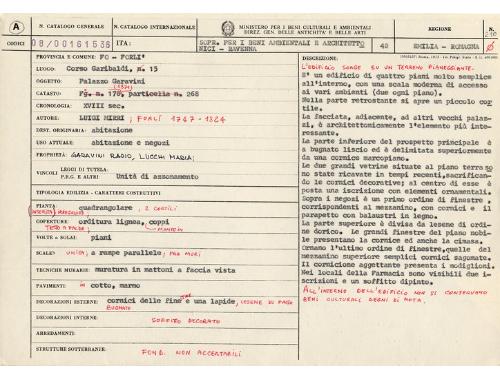 A
N. CATALOGO GENERALE
N. CATALOGO INTERNAZIONALE
MINISTERO PER I BENI CULTURALI E AMBIENTALI
DIREZ. GEN. DELLE ANTICHITÀ E BELLE ARTI
REGIONE
N.
CODICI
08/00161536
ITA:
SOPR. PER I BENI AMBIENTALI E ARCHITETTO
NICI - RAVENNA
40
EMILIA - ROMAGNA
PROVINCIA E COMUNE: FO - FORLI'
LUOGO: Corso Garibaldi, n. 15
OGGETTO: Palazzo Garavini
CATASTO: Fg. n. 178, particella n. 268
CRONOLOGIA: XVIII sec.
AUTORE: LUIGI MIRRI ; FORLÌ 1747-1824
DEST. ORIGINARIA: abitazione
USO ATTUALE: abitazione e negozi
PROPRIETÀ: GARAVINI RADIO, LUCCHI MARIA
VINCOLI
LEGGI DI TUTELA:
P.R.G. E ALTRI: Unità di azzonamento
TIPOLOGIA EDILIZIA - CARATTERI COSTRUTTIVI
PIANTA: quadrangolare ; 2 CORTILI
COPERTURE: orditura lignea, coppi
TETTO A FALDE
VOLTE o SOLAI: piani
SCALE: UNICA; a rampe parallele
TECNICHE MURARIE: muratura in mattoni a faccia vista
PAVIMENTI: in cotto, marmo
DECORAZIONI ESTERNE: cornici delle fine e una lapide, LESENE DI FINTO
BUGNATO
DECORAZIONI INTERNE: SOFFITTO DECORATO
ARREDAMENTO:
STRUTTURE SOTTERRANEE: FOND. NON ACCERTABILI
DESCRIZIONE:
L'EDIFICIO SORGE SU UN TERRENO PIANEGGIANTE.
E' un edificio di quattro piani molto semplice
all'interno, con una scala moderna di accesso
ai vari ambienti (due ogni piano).
Nella parte retrostante si apre un piccolo cor
tile.
La facciata, adiacente, ad altri vecchi palaz
zi, è architettonicamente l'elemento più inte-
ressante.
La parte inferiore del prospetto principale è
a bugnato liscio ed è delimitata superiormente da
una cornice marcopiano.
Le due grandi vetrine situate al piano terra so
no state ricavate in tempi recenti, sacrifican-
do le cornici decorative; al centro di esse è
posta un iscrizione con elementi ornamentali.
Sopra i negozi è un primo ordine di finestre,
corrispondenti al mezzanino, con cornici e il
parapetto con balaustri in legno.
La parte superiore è divisa da lesene di ordi-
ne dorico. Le grandi finestre del piano nobi-
le presentano la cornice ed anche la cimasa.
Ornano l'ultimo ordine di finestre, quelle del
mezzanino superiore semplici cornici sagomate.
Il cornicione aggettante presenta i modiglioni.
Nei locali della Farmacia sono visibili due i-
scrizioni e un soffitto dipinto.
ALL'INTERNO DELL'EDIFICIO NON SI CONSERVANO
BENI CULTURALI DEGNI DI NOTA.